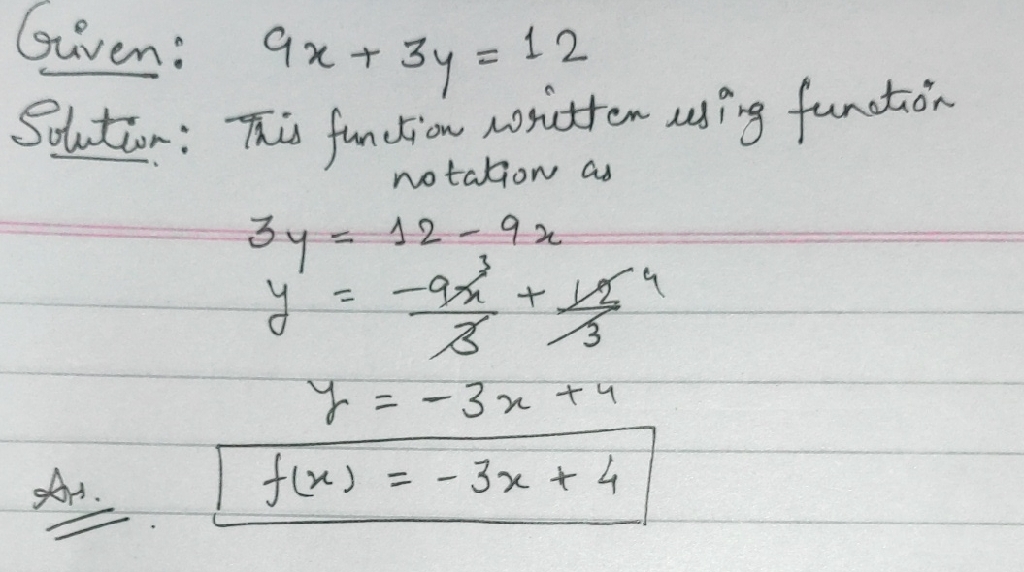 Given: 9x + 3y = 12
Solution: This function written using function
notation as
3y = 12 - 9x
y = -9x/3 + 12/3
3 4
y = -3x + 4
Ans. f(x) = -3x + 4